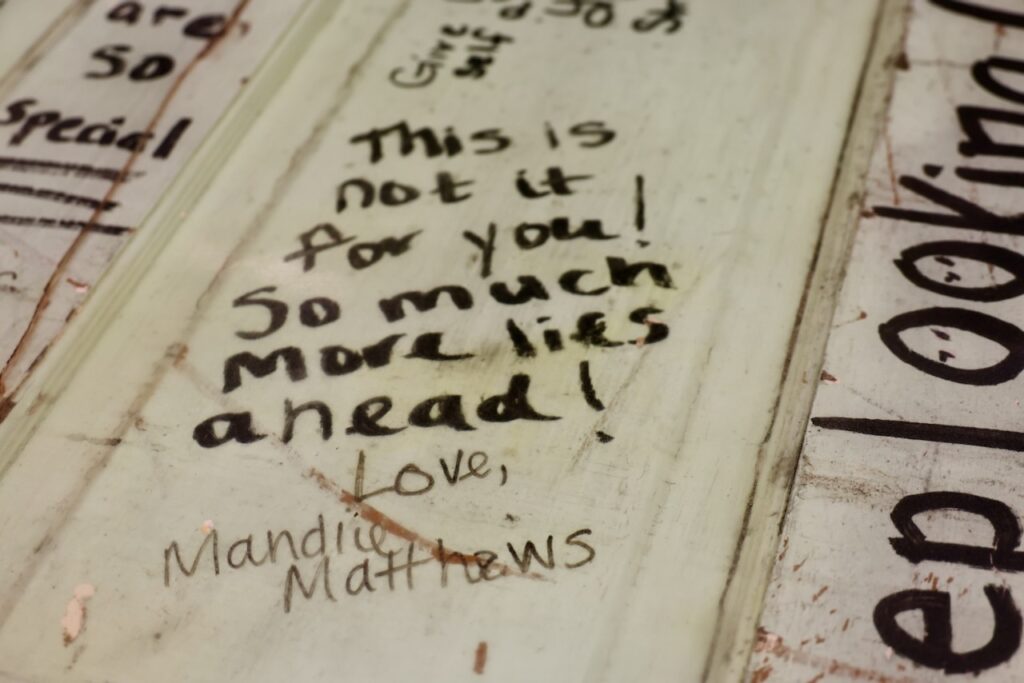 are
so
special
Give
self
This is
not it
for you!
So much
more lies
ahead!
Love,
Mandiie
Matthews
ep looking